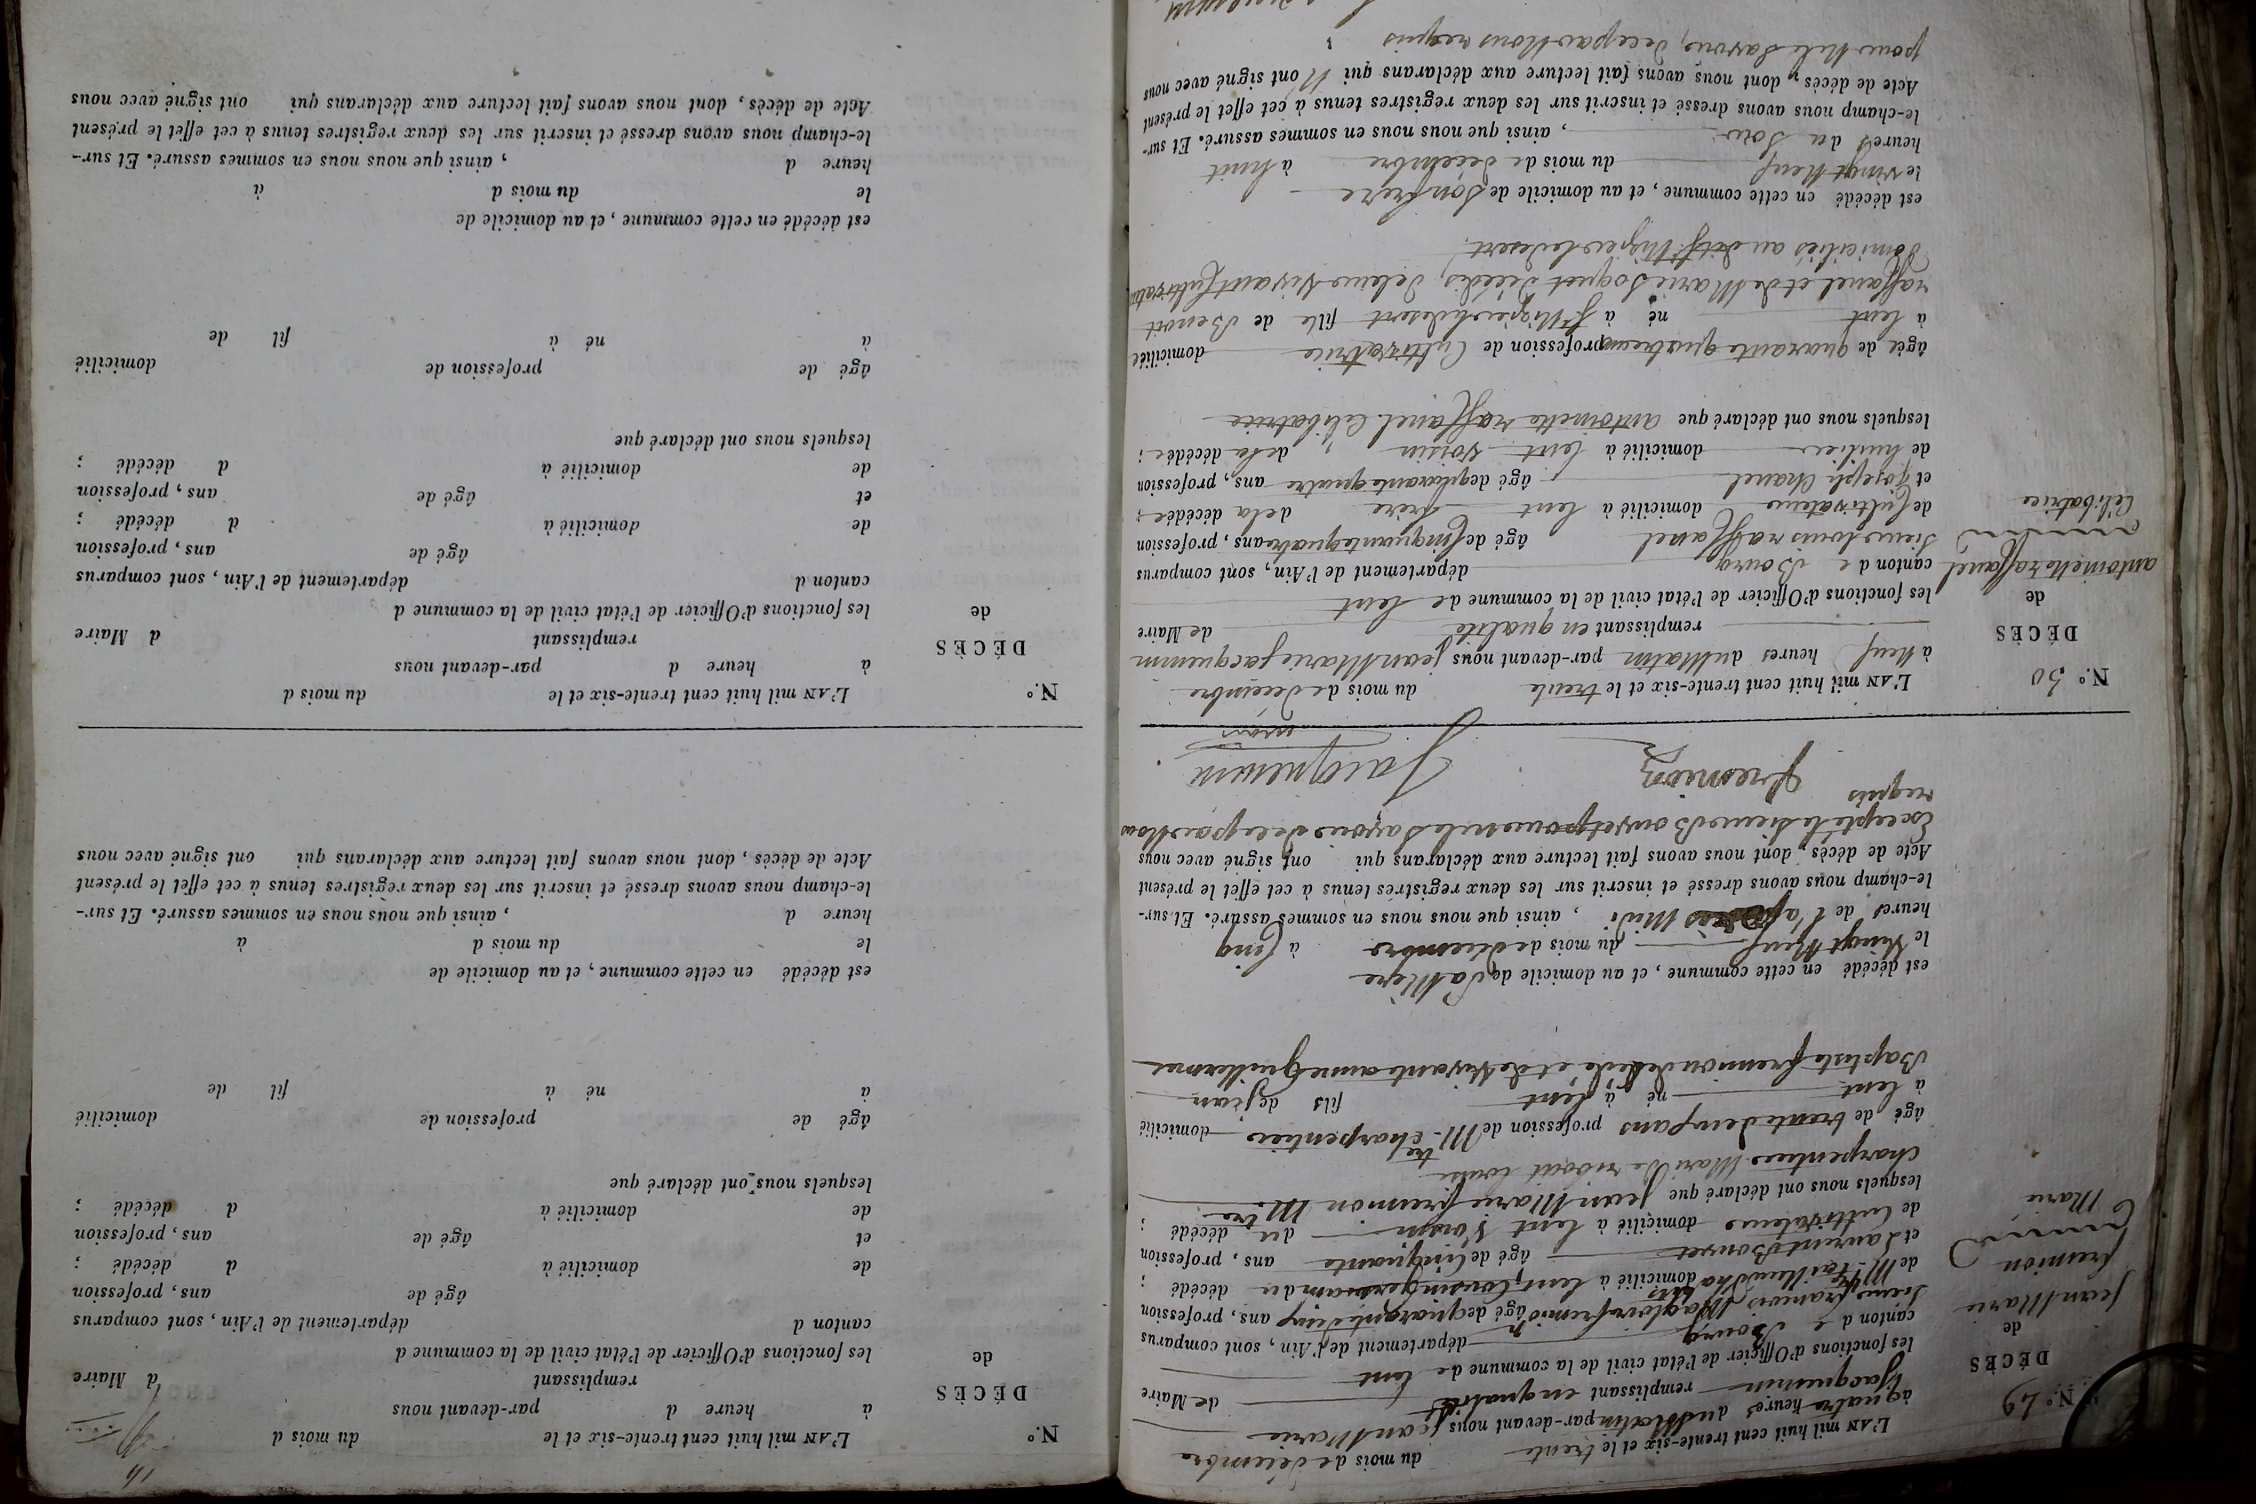 N.° 49
DÉCÈS
de
jean Marie
fremion
Marié
L'AN mil huit cent trente-six et le trente du mois de décembre
à quatre heures du Matin par-devant nous jean Marie
jacquemin remplissant en qualité de Maire
les fonctions d'Officier de l'état civil de la commune de lent
canton de Bourg département de l'Ain, sont comparus
Sieur francois fremion âgé de quarante deux ans, profession
de M.tre domicilié à lent Cousin germain du décédé ;
et Laurent Bouvet âgé de Cinquante ans, profession
de Cultivateur domicilié à lent Voisin du décédé ;
lesquels nous ont déclaré que jean Marie fremion M.tre
charpentier Mari de
âgé de trente deux ans profession de M.tre charpentier domicilié
à lent né à lent fils de jean
Baptiste fremion décédé et de vivante anne guillermet
est décédé en cette commune, et au domicile de Sa Mère
le vingt Neuf du mois de décembre à Cinq
heures de l'après Midi, ainsi que nous nous en sommes assuré. Et sur-
le-champ nous avons dressé et inscrit sur les deux registres tenus à cet effet le présent
Acte de décès, dont nous avons fait lecture aux déclarans qui ont signé avec nous
Excepté le Sieur Bouvet pour ne le Savoir de ce par Nous
requis
fremion
Jacquemin
maire
N.° 50
DÉCÈS
de
antoinette raffanel
Célibatrice
L'AN mil huit cent trente-six et le trente du mois de décembre
à Neuf heures du Matin par-devant nous jean Marie jacquemin
remplissant en qualité de Maire
les fonctions d'Officier de l'état civil de la commune de lent
canton de Bourg département de l'Ain, sont comparus
Sieur louis raffanel âgé de Cinquante quatre ans, profession
de Cultivateur domicilié à lent frère de la décédée ;
et joseph Chanel âgé de quarante quatre ans, profession
de huilier domicilié à lent voisin de la décédée ;
lesquels nous ont déclaré que antoinette raffanel Célibatrice
âgée de quarante quatre ans profession de Cultivatrice domiciliée
à lent né à St Nizier le desert fille de Benoit
raffanel et de Marie Joquet décédés, de leur vivant Cultivateurs
Domiciliés au dit St Nizier le desert.
est décédée en cette commune, et au domicile de Son frère
le vingt Neuf du mois de décembre à huit
heures du Soir, ainsi que nous nous en sommes assuré. Et sur-
le-champ nous avons dressé et inscrit sur les deux registres tenus à cet effet le présent
Acte de décès, dont nous avons fait lecture aux déclarans qui N ont signé avec nous
pour Ne le Savoir, de ce par Nous requis
N.°
DÉCÈS
de
L'AN mil huit cent trente-six et le du mois d
à heure d par-devant nous
remplissant d Maire
les fonctions d'Officier de l'état civil de la commune d
canton d département de l'Ain, sont comparus
âgé de ans, profession
de domicilié à d décédé ;
et âgé de ans, profession
de domicilié à d décédé ;
lesquels nous ont déclaré que
âgé de profession de domicilié
à né à fil de
est décédé en cette commune, et au domicile de
le du mois d à
heure d , ainsi que nous nous en sommes assuré. Et sur-
le-champ nous avons dressé et inscrit sur les deux registres tenus à cet effet le présent
Acte de décès, dont nous avons fait lecture aux déclarans qui ont signé avec nous
N.°
DÉCÈS
de
L'AN mil huit cent trente-six et le du mois d
à heure d par-devant nous
remplissant d Maire
les fonctions d'Officier de l'état civil de la commune d
canton d département de l'Ain, sont comparus
âgé de ans, profession
de domicilié à d décédé ;
et âgé de ans, profession
de domicilié à d décédé ;
lesquels nous ont déclaré que
âgé de profession de domicilié
à né à fil de
est décédé en cette commune, et au domicile de
le du mois d à
heure d , ainsi que nous nous en sommes assuré. Et sur-
le-champ nous avons dressé et inscrit sur les deux registres tenus à cet effet le présent
Acte de décès, dont nous avons fait lecture aux déclarans qui ont signé avec nous